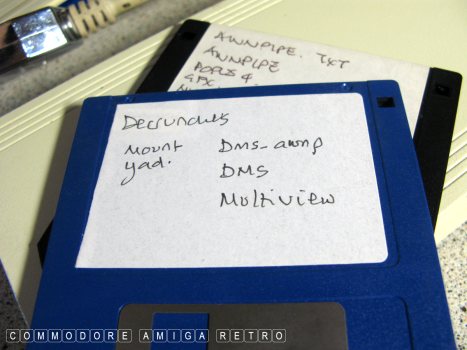 AWNPIPE. TXT
AWNPIPE
GFX
Decrunchers
Mount
yad.
Dms-awnp
DMS
Multiview
COMMODORE AMIGA RETRO